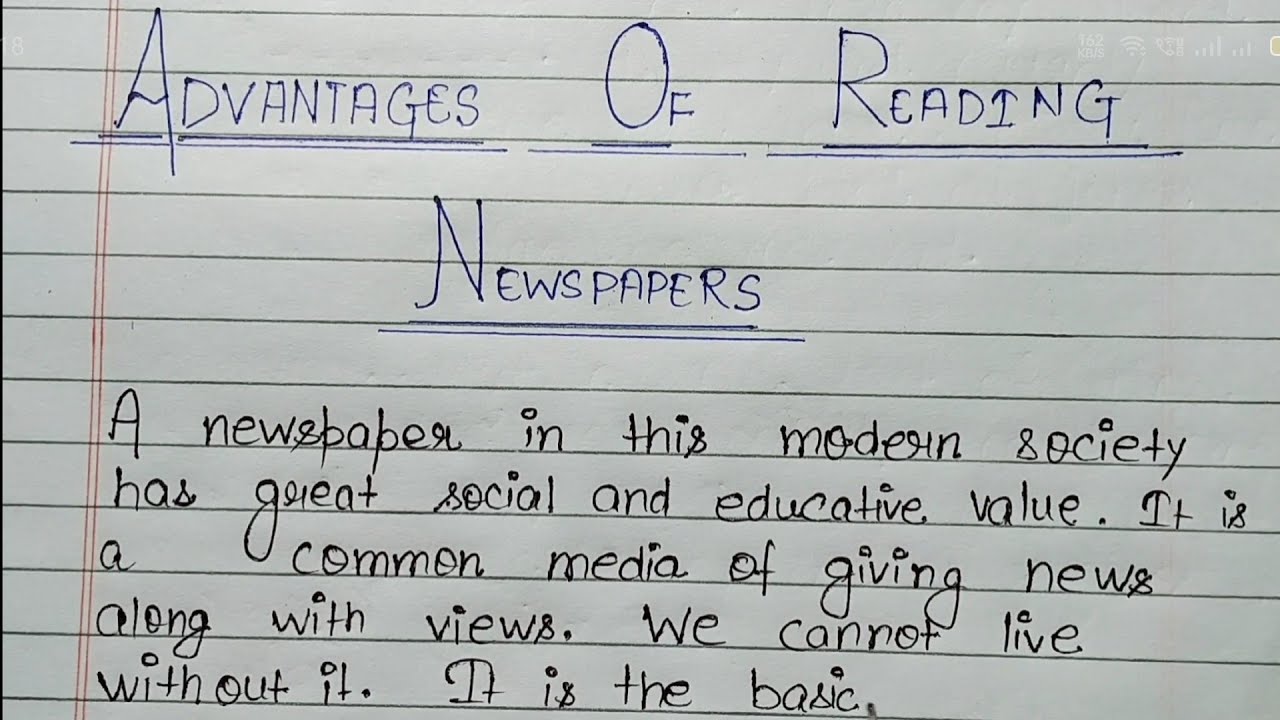 18
162
KB/S
ADVANTAGES OF READING
NEWSPAPERS
A newspaper in this modern society
has great social and educative value. It is
a common media of giving news
along with views. We cannot live
without it. It is the basic.